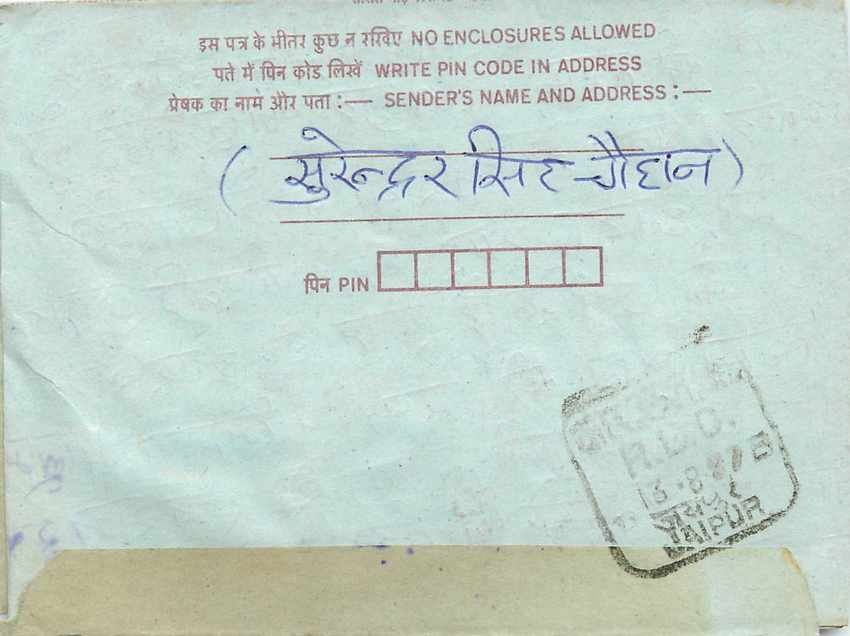 इस पत्र के भीतर कुछ न रखिए NO ENCLOSURES ALLOWED
पते में पिन कोड लिखें WRITE PIN CODE IN ADDRESS
प्रेषक का नाम और पता :— SENDER'S NAME AND ADDRESS :—
( सुरेन्द्र सिंह चौहान )
पिन PIN
R.L.O.
जयपुर
JAIPUR